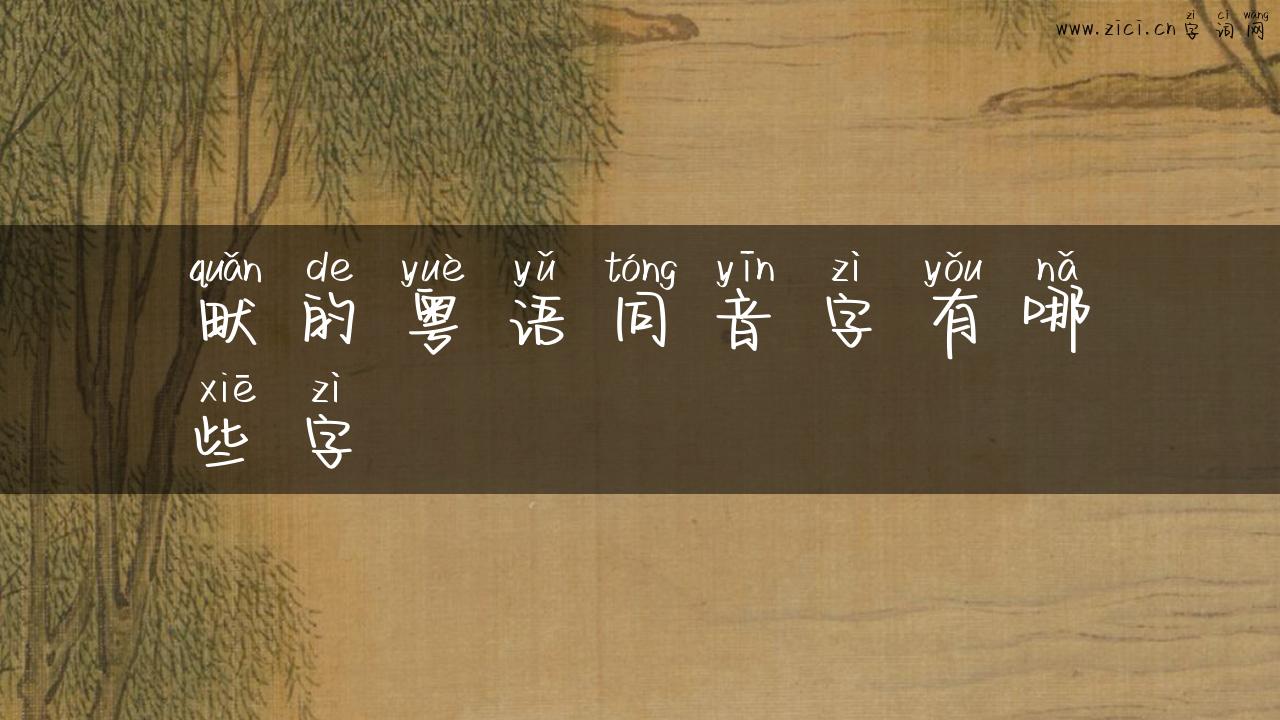 zì cí wǎng
www.zici.cn字词网
quǎn de yuè yǔ tóng yīn zì yǒu nǎ
畎的粤语同音字有哪
xiē zì
些字